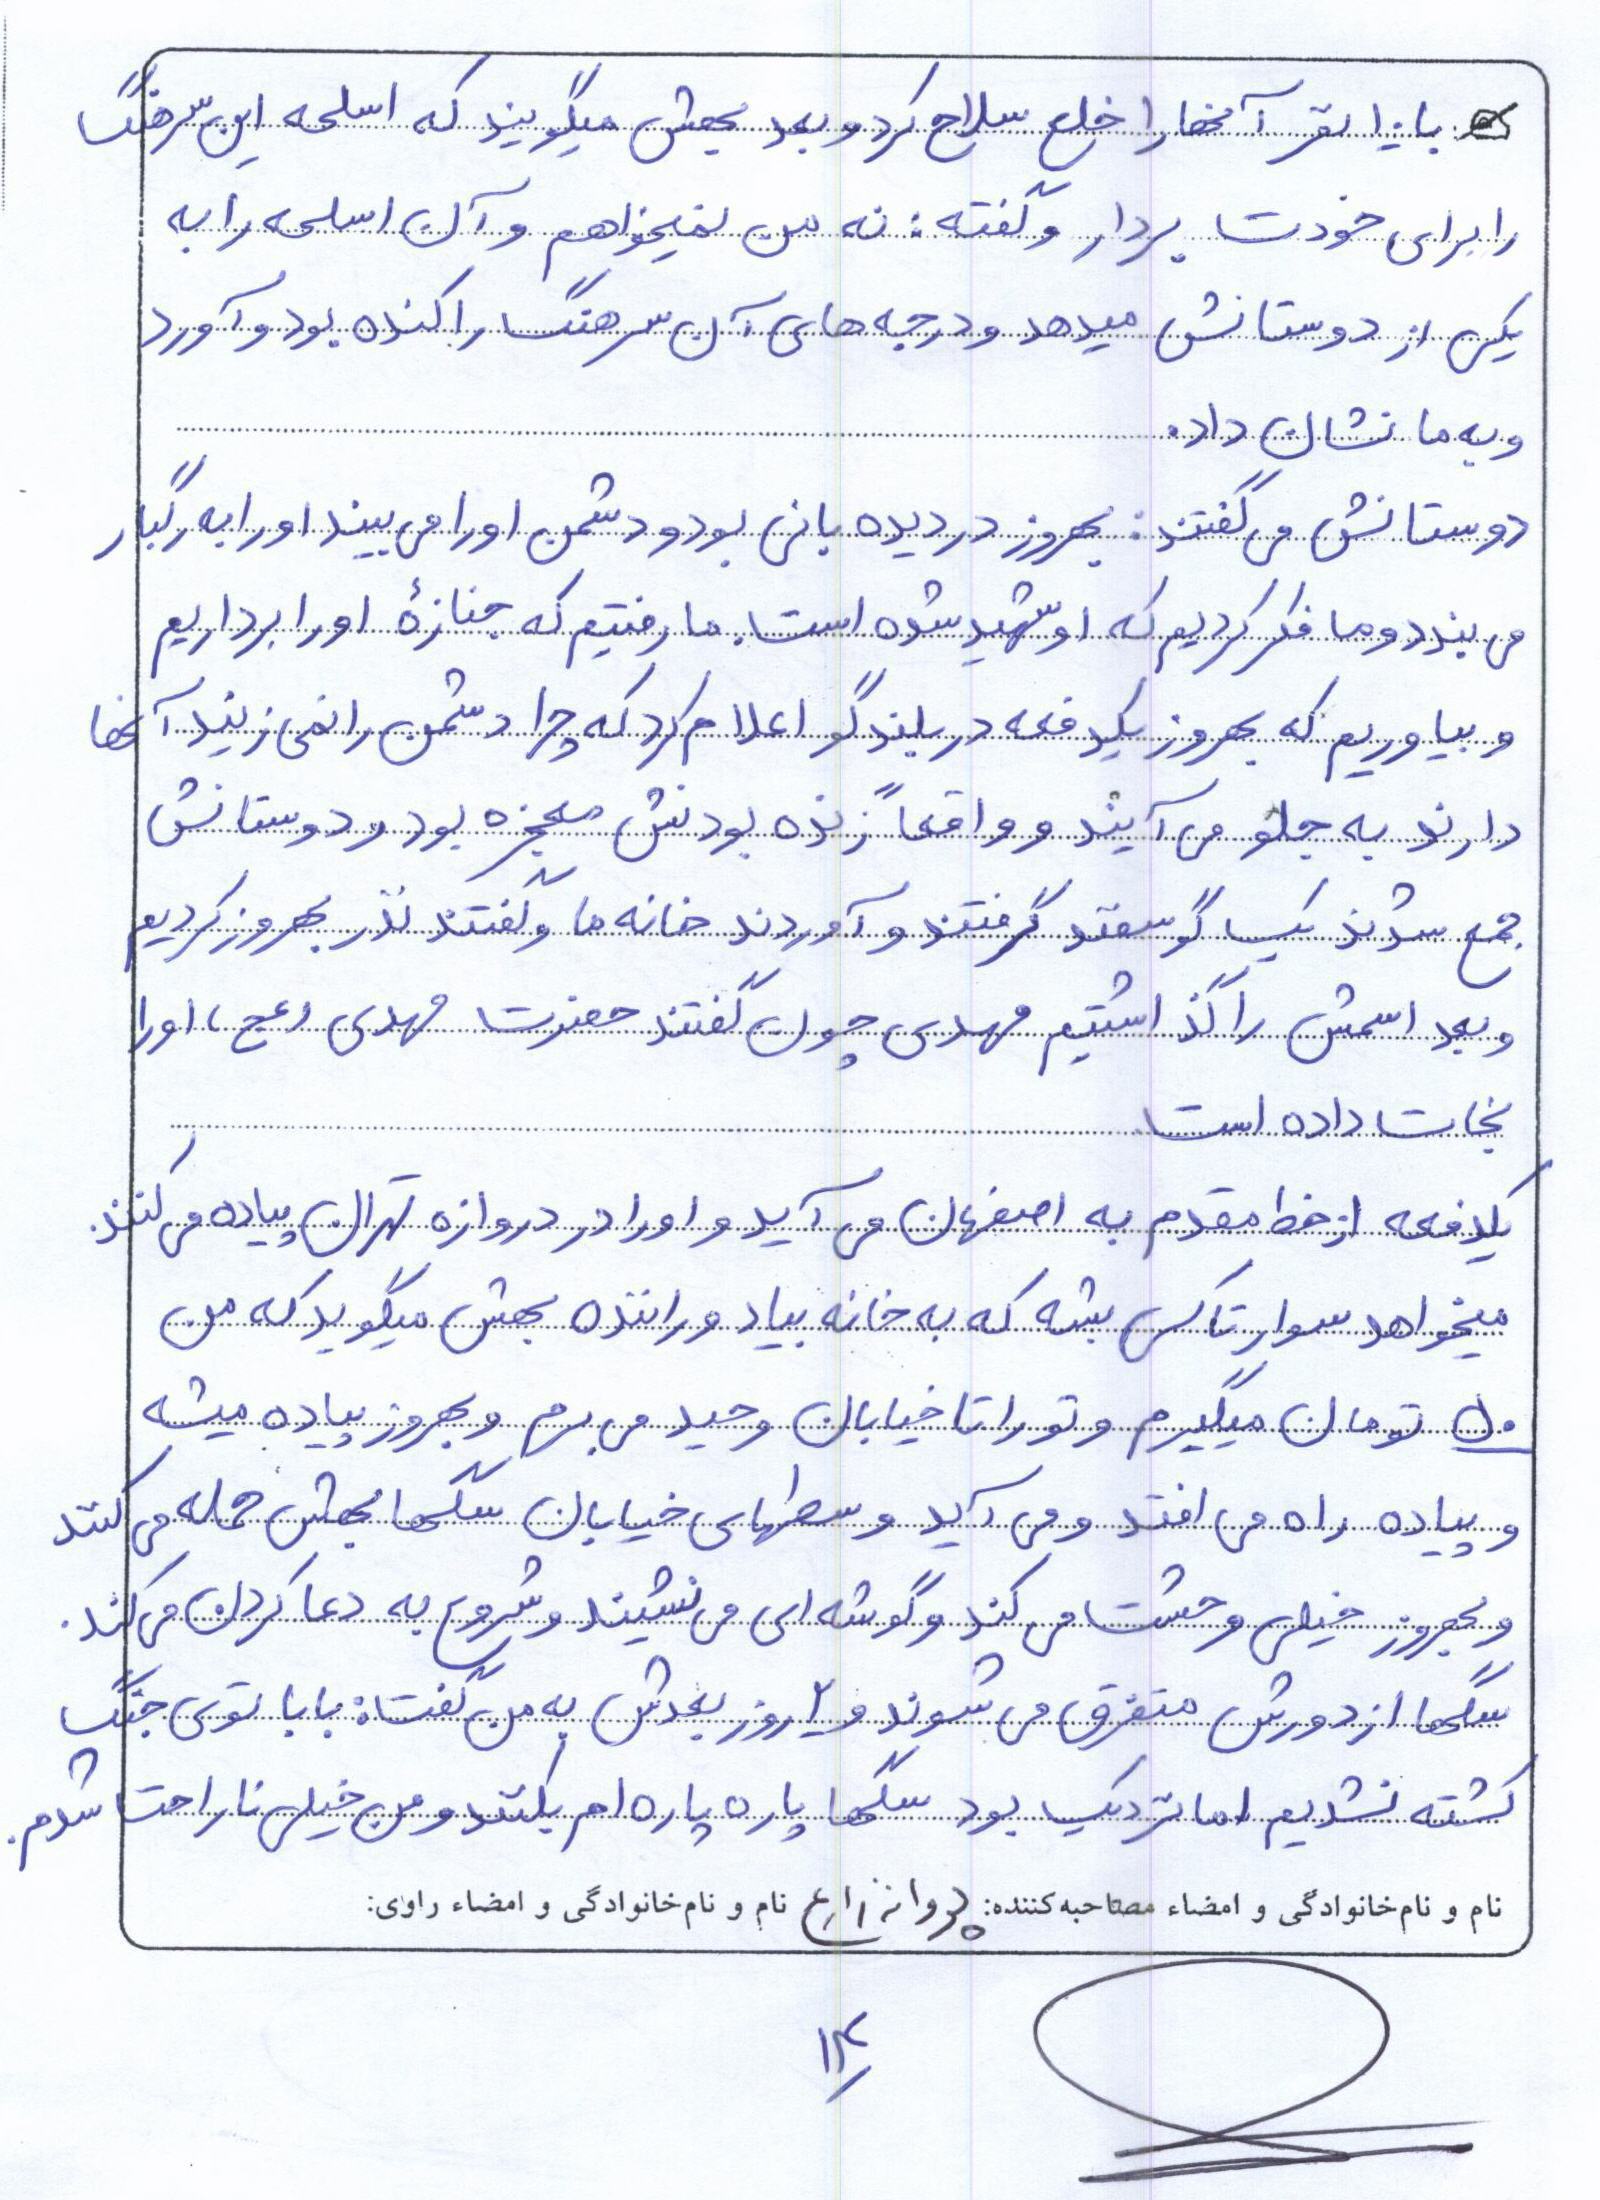 با ۱۰ نفر آنها را خلع سلاح کرد و بعد بهش میگویند که اسلحه این سرهنگ
را برای خودت بردار و گفته: نه من نمیخواهم و آن اسلحه را به
یکی از دوستانش میدهد و درجه های آن سرهنگ را کنده بود و آورد
و به ما نشان داد.
دوستانش می گفتند: بهروز در دیده بانی بود و دشمن او را می بیند او را به رگبار
می بندد و ما فکر کردیم که او شهید شده است. ما رفتیم که جنازهٔ او را برداریم
و بیاوریم که بهروز یکدفعه در بلندگو اعلام کرد که چرا دشمن را نمی زنید آنها
دارند به جلو می آیند و واقعاً زنده بودنش معجزه بود و دوستانش
جمع شدند یک گوسفند گرفتند و آوردند خانه ما و گفتند نذر بهروز کردیم
و بعد اسمش را گذاشتیم مهدی چون گفتند حضرت مهدی (عج) او را
نجات داده است
یکدفعه از خط مقدم به اصفهان می آید و او را در دروازه تهران پیاده می کنند.
میخواهد سوار تاکسی بشه که به خانه بیاد و راننده بهش میگوید که من
۵۰ تومان میگیرم و تو را تا خیابان وحید می برم و بهروز پیاده میشه
و پیاده راه می افتد و می آید وسطهای خیابان سگها بهش حمله می کنند
و بهروز خیلی وحشت می کند و گوشه ای می نشیند و شروع به دعا کردن می کند.
سگها از دورش متفرق می شوند و ۲ روز بعدش به من گفت: بابا توی جنگ
کشته نشدیم اما نزدیک بود سگها پاره پاره ام بکنند و من خیلی ناراحت شدم.
نام و نام‌خانوادگی و امضاء مصاحبه‌کننده: پروانه زارع نام و نام‌خانوادگی و امضاء راوی: